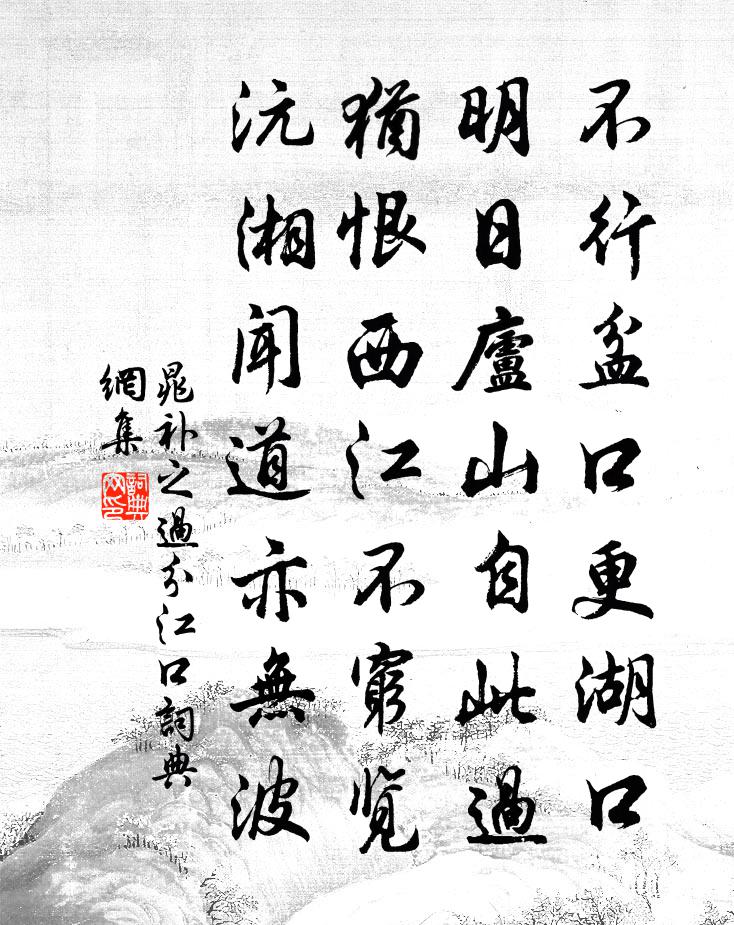 不行盆口更湖口
明日廬山自此過
猶恨西江不窮覽
沅湘聞道亦無波
晁补之過分江口詞典
網集
詞典網印